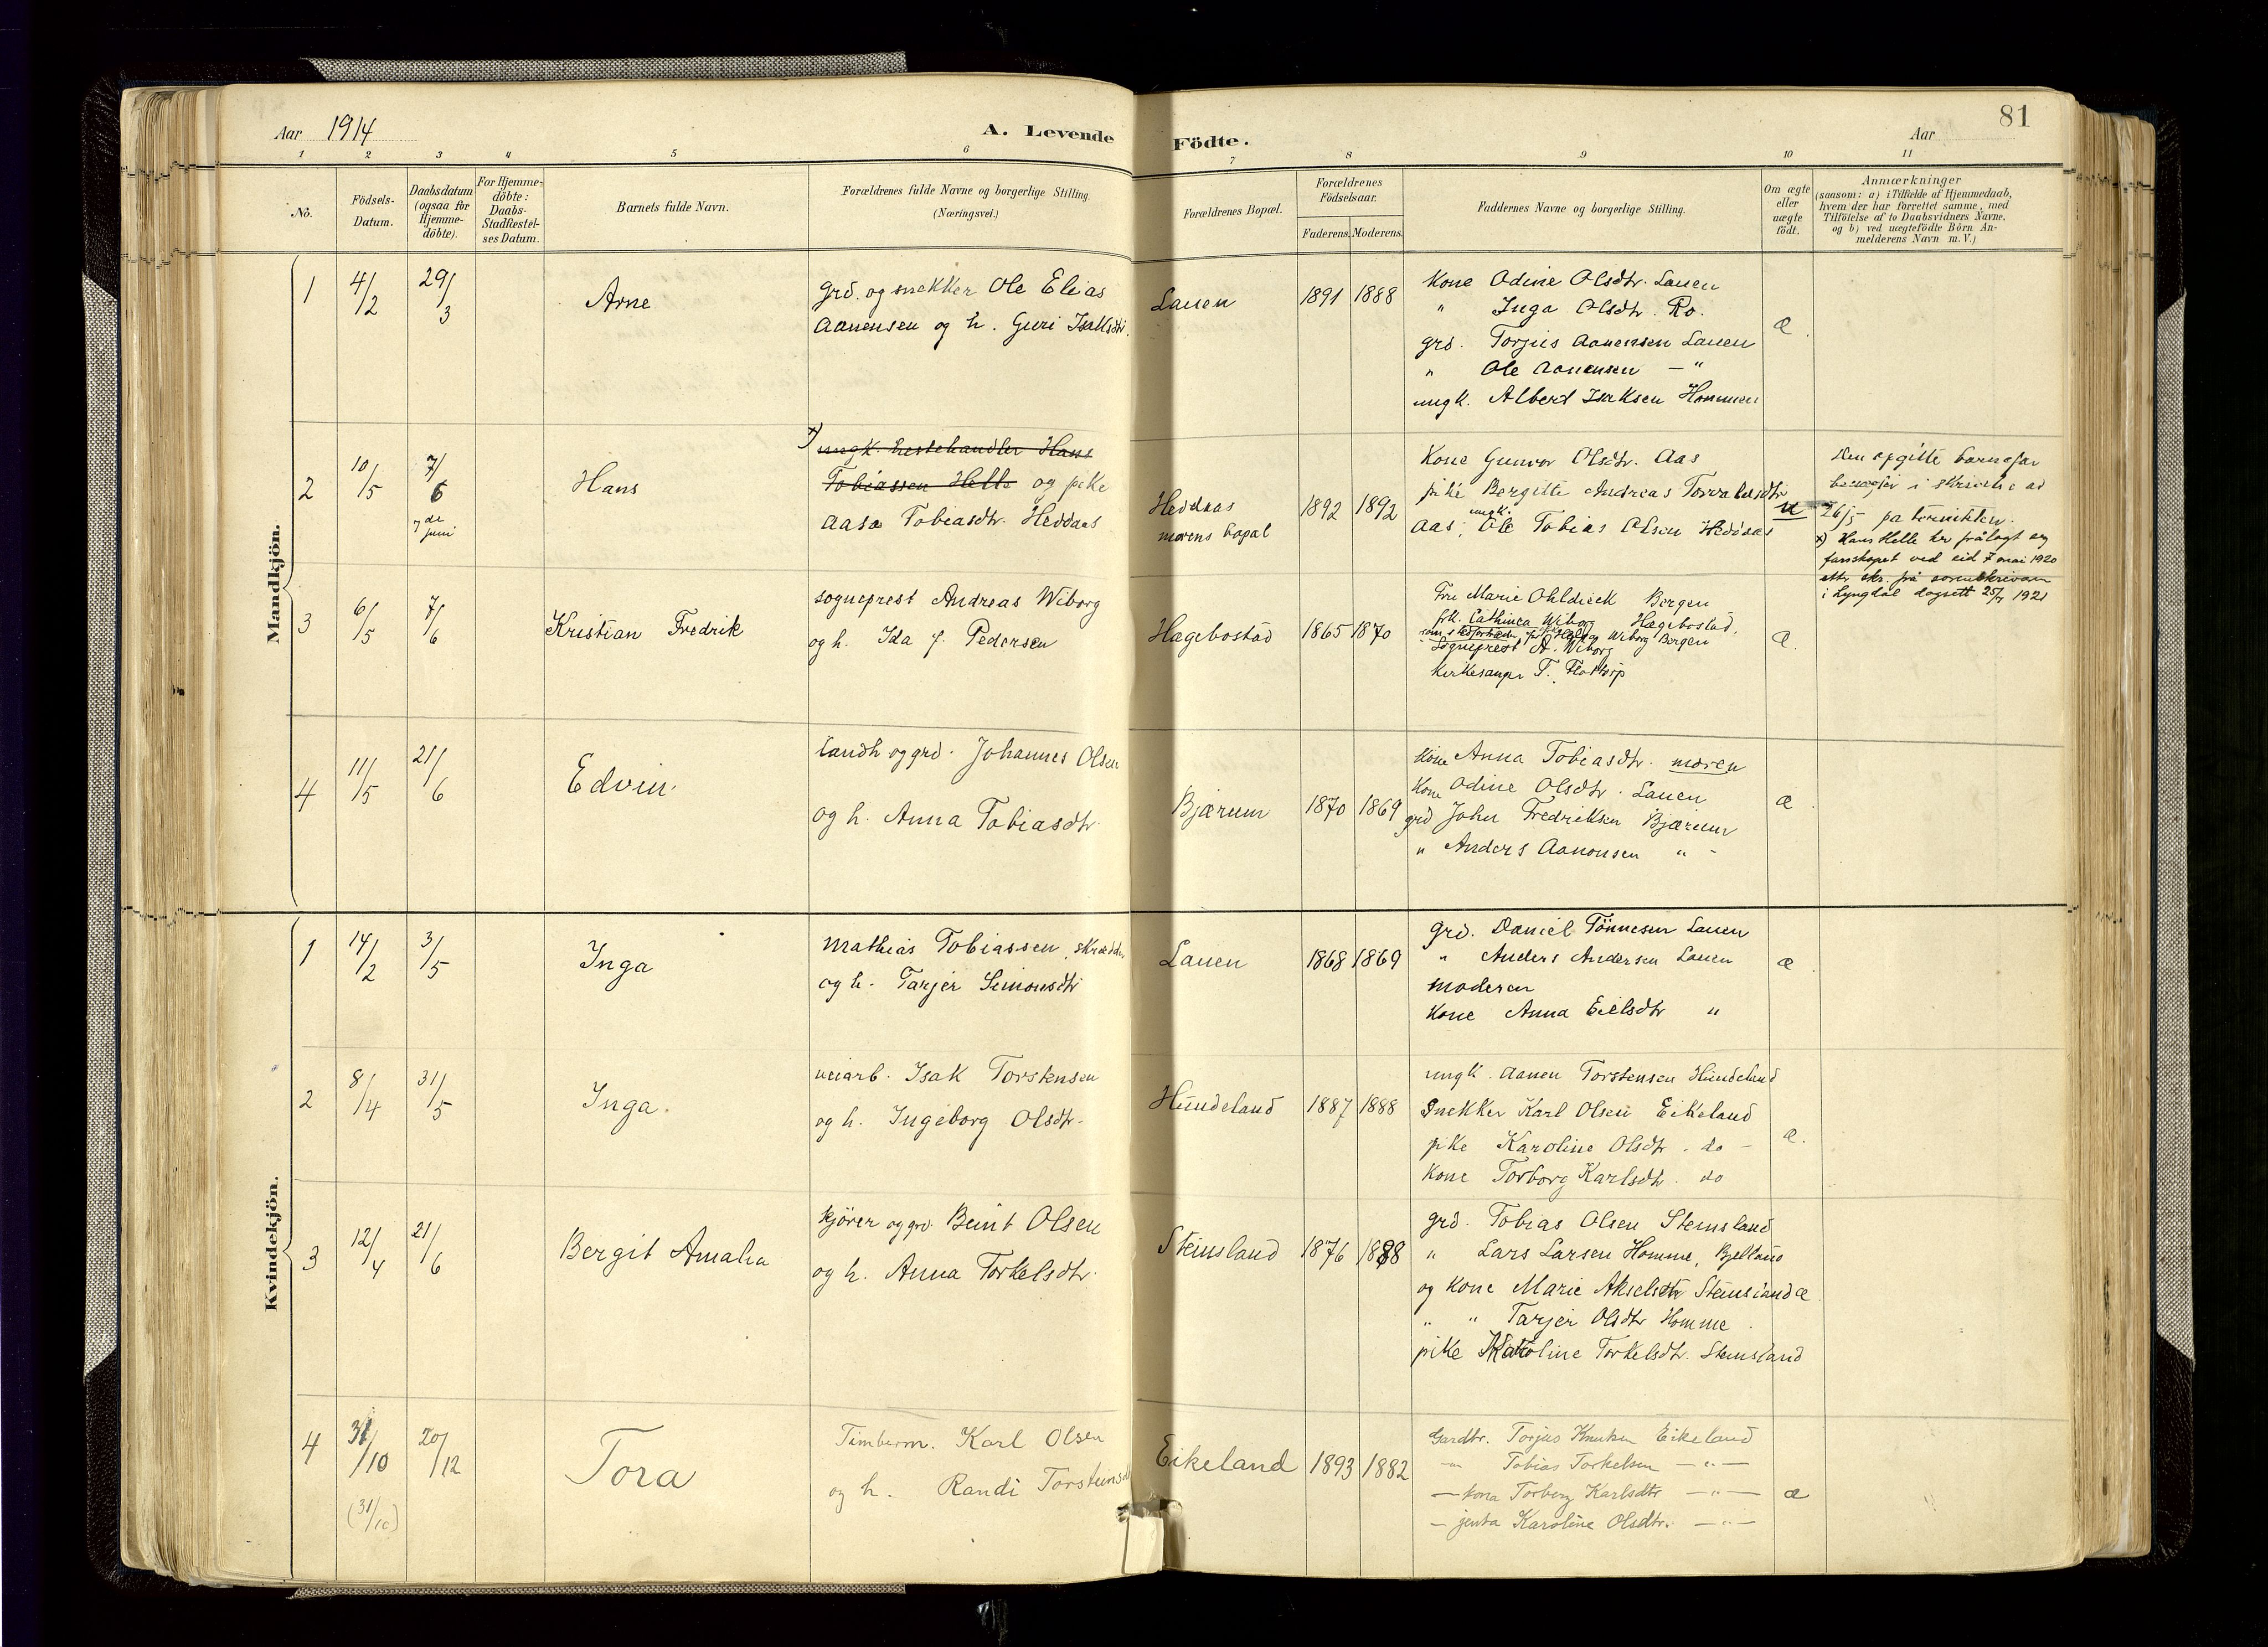 81
Aar 1914
A. Levende Födte.
Aar
1 2 3 4 5 6 7 8 9 10 11
No.
Födsels-Datum.
Daabsdatum (ogsaa for Hjemme-döbte).
For Hjemme-döbte: Daabs-Stadfæstel-ses Datum.
Barnets fulde Navn.
Forældrenes fulde Navne og borgerlige Stilling.
(Næringsvei.)
Forældrenes Bopæl.
Forældrenes Födselsaar.
Faderens. Moderens.
Faddernes Navne og borgerlige Stilling.
Om ægte eller uægte födt.
Anmærkninger
(saasom: a) i Tilfælde af Hjemmedaab,
hvem der har forrettet samme, med
Tilföielse af to Daabsvidners Navne,
og b) ved uægtefödte Börn An-
melderens Navn m. V.)
Mandkjön.
1 4/2 29/3 Arne
grd. og snekker Ole Elias
Aanensen og h. Guri Isaksdtr.
Lauen 1891 1888
Kone Odine Olsdtr. Lauen
" Inga Olsdtr. Ro.
grd. Torjus Aanensen Lauen
" Ole Aanensen — "
ungk. Albert Isaksen Hommen
æ.
2 10/5 7/6
7de juni
Hans
x) ungk. hestehandler Hans
Tobiassen Helle og pike
Aasa Tobiasdtr. Heddaas
Heddaas
morens bopæl
1892 1892
Kone Gunvor Olsdtr. Aas
pike Bergitte Andreas Torvaldsdtr
ungk.
Aas, Ole Tobias Olsen Heddaas
u
Den opgitte barnefar
benegter i skrivelse av
26/5 pa
x) Hans Helle har frålagt seg
farsskapet ved eid 7 mai 1920
ettr skr. frå sorenskrivaren
i Lyngdal dagsett 25/7 1921
3 6/5 7/6 Kristian Fredrik
sogneprest Andreas Wiborg
og h. Ida f. Pedersen
Hægebostad 1865 1870
Fru Marie Ohldieck Bergen
frk. Cathinca Wiborg Hægebostad,
Wiborg Bergen
Sogneprest A. Wiborg
Kirkesanger T. Flottorp
æ.
4 11/5 21/6 Edvin
landh og grd. Johannes Olsen
og h. Anna Tobiasdtr.
Bjærum 1870 1869
Kone Anna Tobiasdtr. moren
Kone Odine Olsdtr. Lauen
grd John Fredriksen Bjærum
" Anders Aanonsen " -
æ.
Kvindekjön.
1 14/2 3/5 Inga
Mathias Tobiassen, skrædder
og h. Tarjer Simonsdtr
Lauen 1868 1869
grd. Daniel Tönnesen Lauen
" Anders Andersen Lauen
moderen
Kone Anna Eielsdtr "
æ.
2 8/4 31/5 Inga.
veiarb. Isak Torstensen
og h. Ingeborg Olsdtr.
Hundeland 1887 1888
ungk. Aanen Torstensen Hundeland
Snekker Karl Olsen Eikeland
pike Karoline Olsdtr. do -
Kone Torborg Karlsdtr. do
æ.
3 12/4 21/6 Bergit Amalia
kjörer og grd. Beint Olsen
og h. Anna Torkelsdtr.
Steinsland 1876 1888
grd. Tobias Olsen Steinsland
" Lars Larsen Homme, Bjelland
og Kone Marie Akselsdtr Steinsland æ.
" " Tarjer Olsdtr Homme
pike Karoline Torkelsdtr. Steinsland
4 31/10 20/12
(31/10)
Tora
Timberm. Karl Olsen
og h. Randi Torsteinsd
Eikeland 1893 1882
Gardbr. Torjus Knutsen Eikeland
—"— Tobias Torkelsen —"—
— kona Torborg Karlsdtr —"—
— jenta Karoline Olsdtr. —"—
æ